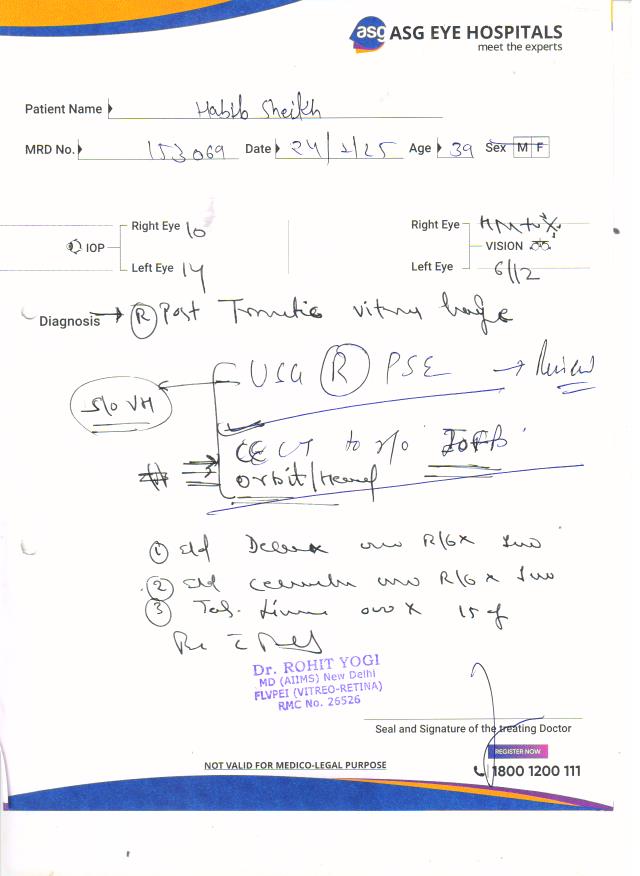 asg ASG EYE HOSPITALS
meet the experts
Patient Name Habib Sheikh
MRD No. 153069 Date 24/2/25 Age 39 Sex M F
Right Eye 10 Right Eye HM+
IOP VISION
Left Eye 14 Left Eye 6/12
Diagnosis → (R) Post
USG (R) PSE → Review
S/O VH
CECT to r/o IOFB
orbit/
① E/d R/G x
② E/d R/G x
③ Tab. x 15
Dr. ROHIT YOGI
MD (AIIMS) New Delhi
FLVPEI (VITREO-RETINA)
RMC No. 26526
Seal and Signature of the treating Doctor
REGISTER NOW
NOT VALID FOR MEDICO-LEGAL PURPOSE
1800 1200 111